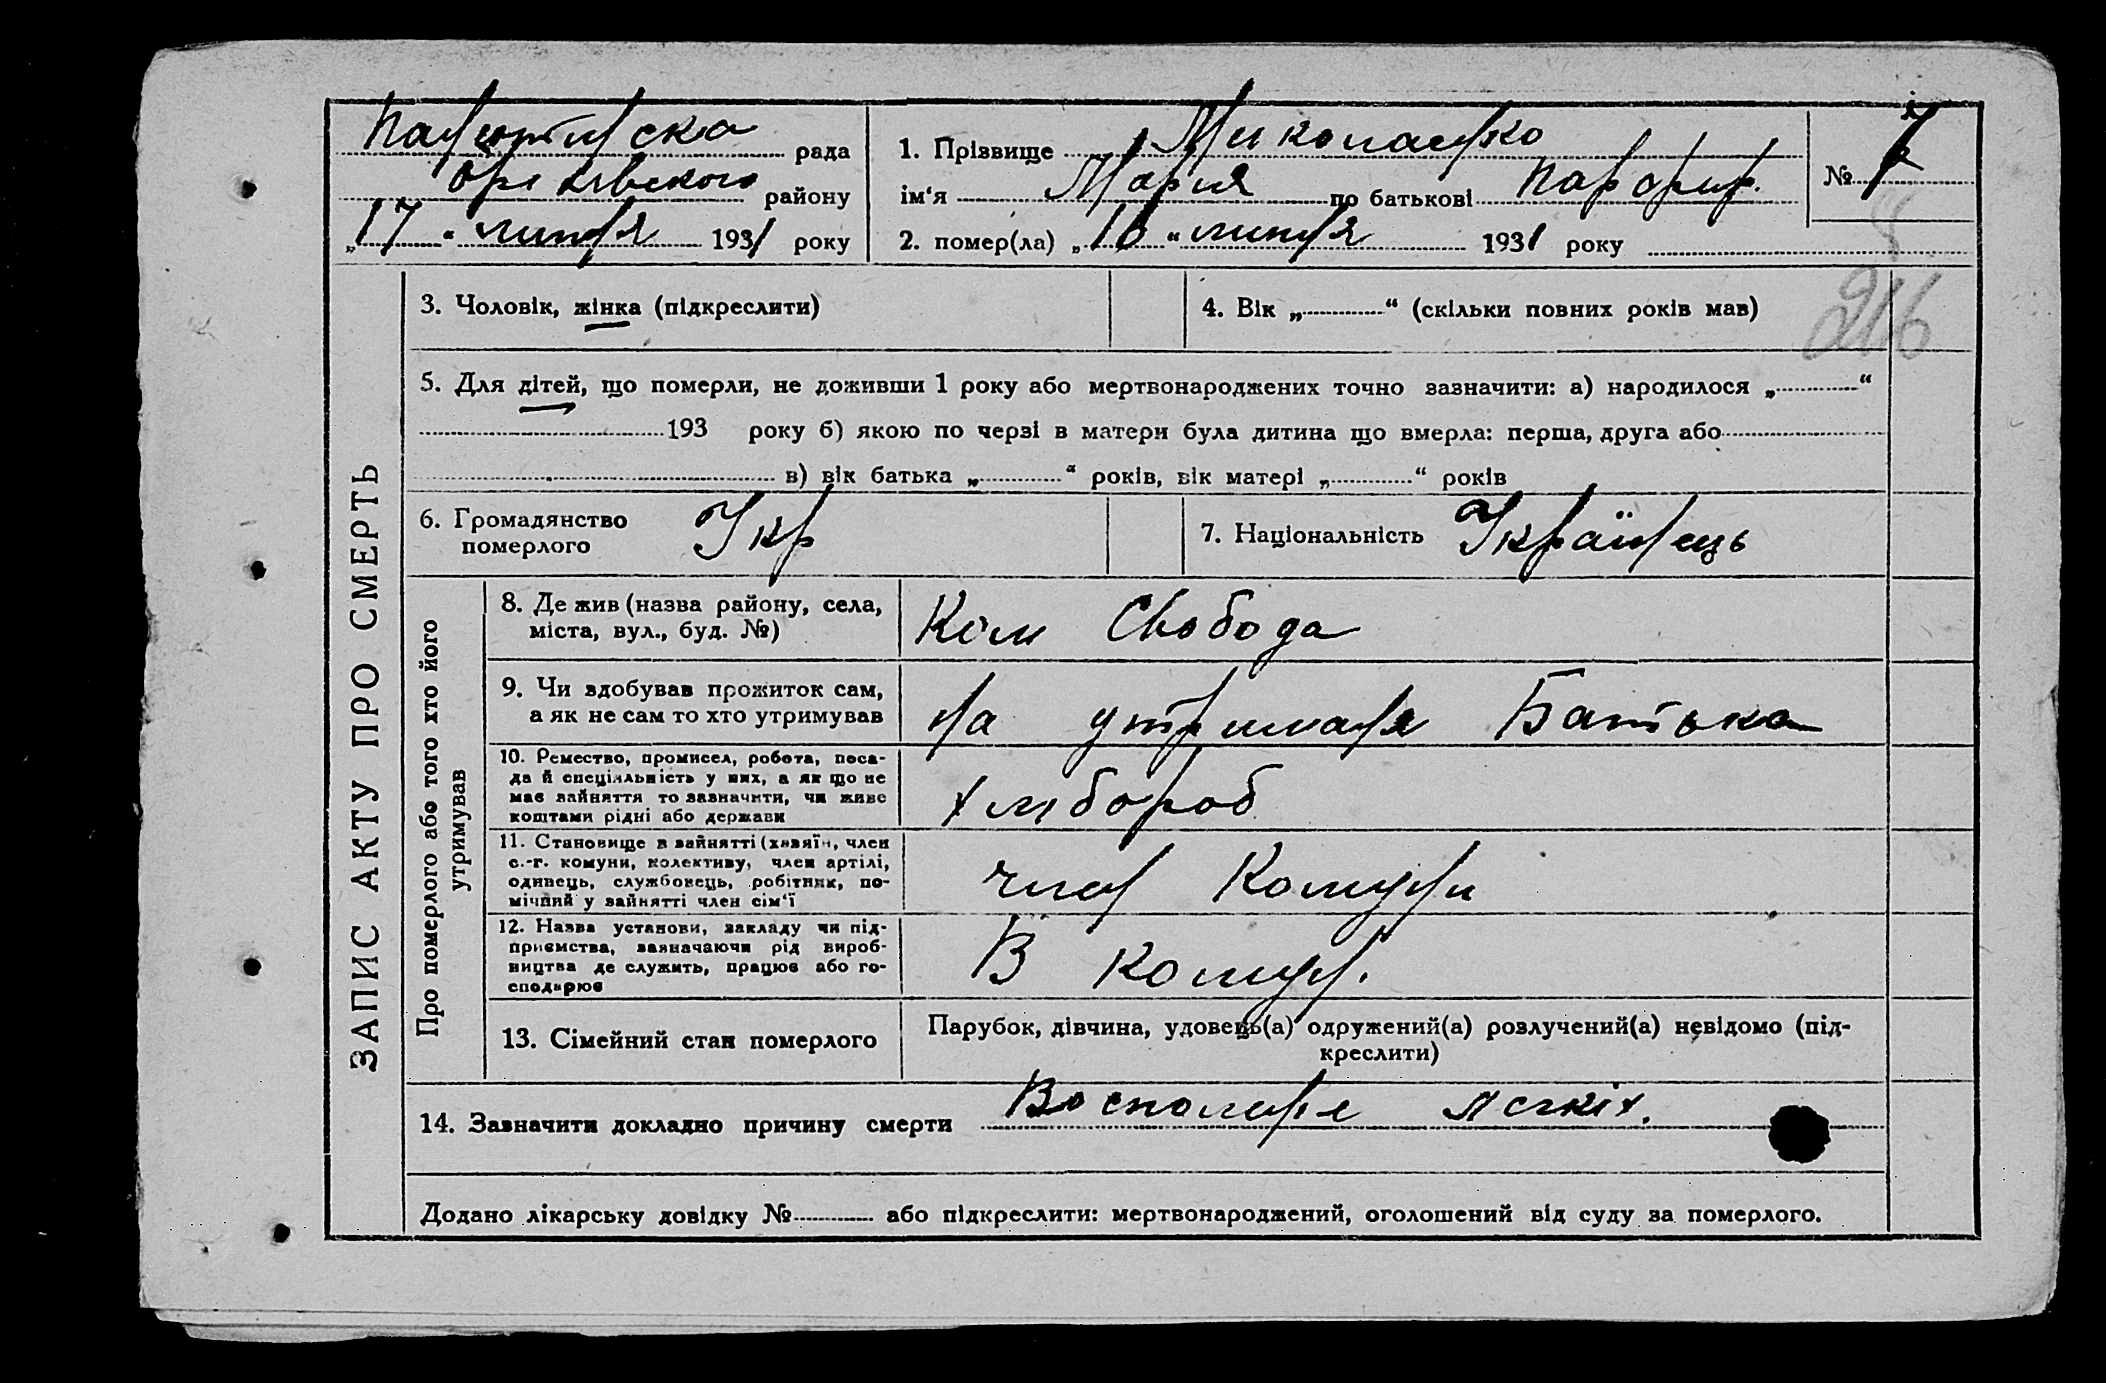 рада
Оріхівского району
„17“ липня 1931 року
1. Прізвище Миколаенко
ім‘я Мария по батькові Парфир.
№ 7
2. помер(ла) „16“ липня 1931 року
216
ЗАПИС АКТУ ПРО СМЕРТЬ
3. Чоловік, жінка (підкреслити)
4. Вік „ “ (скільки повних років мав)
5. Для дітей, що померли, не доживши 1 року або мертвонароджених точно зазначити: а) народилося „ “
193 року б) якою по черзі в матери була дитина що вмерла: перша, друга або
в) вік батька „ “ років, вік матері „ “ років
6. Громадянство
померлого Укр
7. Національність Українець
Про померлого або того хто його
утримував
8. Де жив (назва району, села,
міста, вул., буд. №)
Ком Свобода
9. Чи здобував прожиток сам,
а як не сам то хто утримував
на утриманя Батька
10. Ремество, промисел, робота, поса-
да й спеціяльність у них, а як що не
має зайняття то зазначити, чи живе
коштами рідні або держави
хлібороб
11. Становище в зайнятті (хазяїн, член
с.-г. комуни, колективу, член артілі,
одинець, службовець, робітник, по-
мічний у зайнятті член сім‘ї
член Комуни
12. Назва установи, закладу чи під-
приємства, зазначаючи рід вироб-
ництва де служить, працює або го-
сподарює
В комун.
13. Сімейний стан померлого
Парубок, дівчина, удовець(а) одружений(а) розлучений(а) невідомо (під-
креслити)
14. Зазначити докладно причину смерти Воспаленя легкіх.
Додано лікарську довідку № або підкреслити: мертвонароджений, оголошений від суду за померлого.